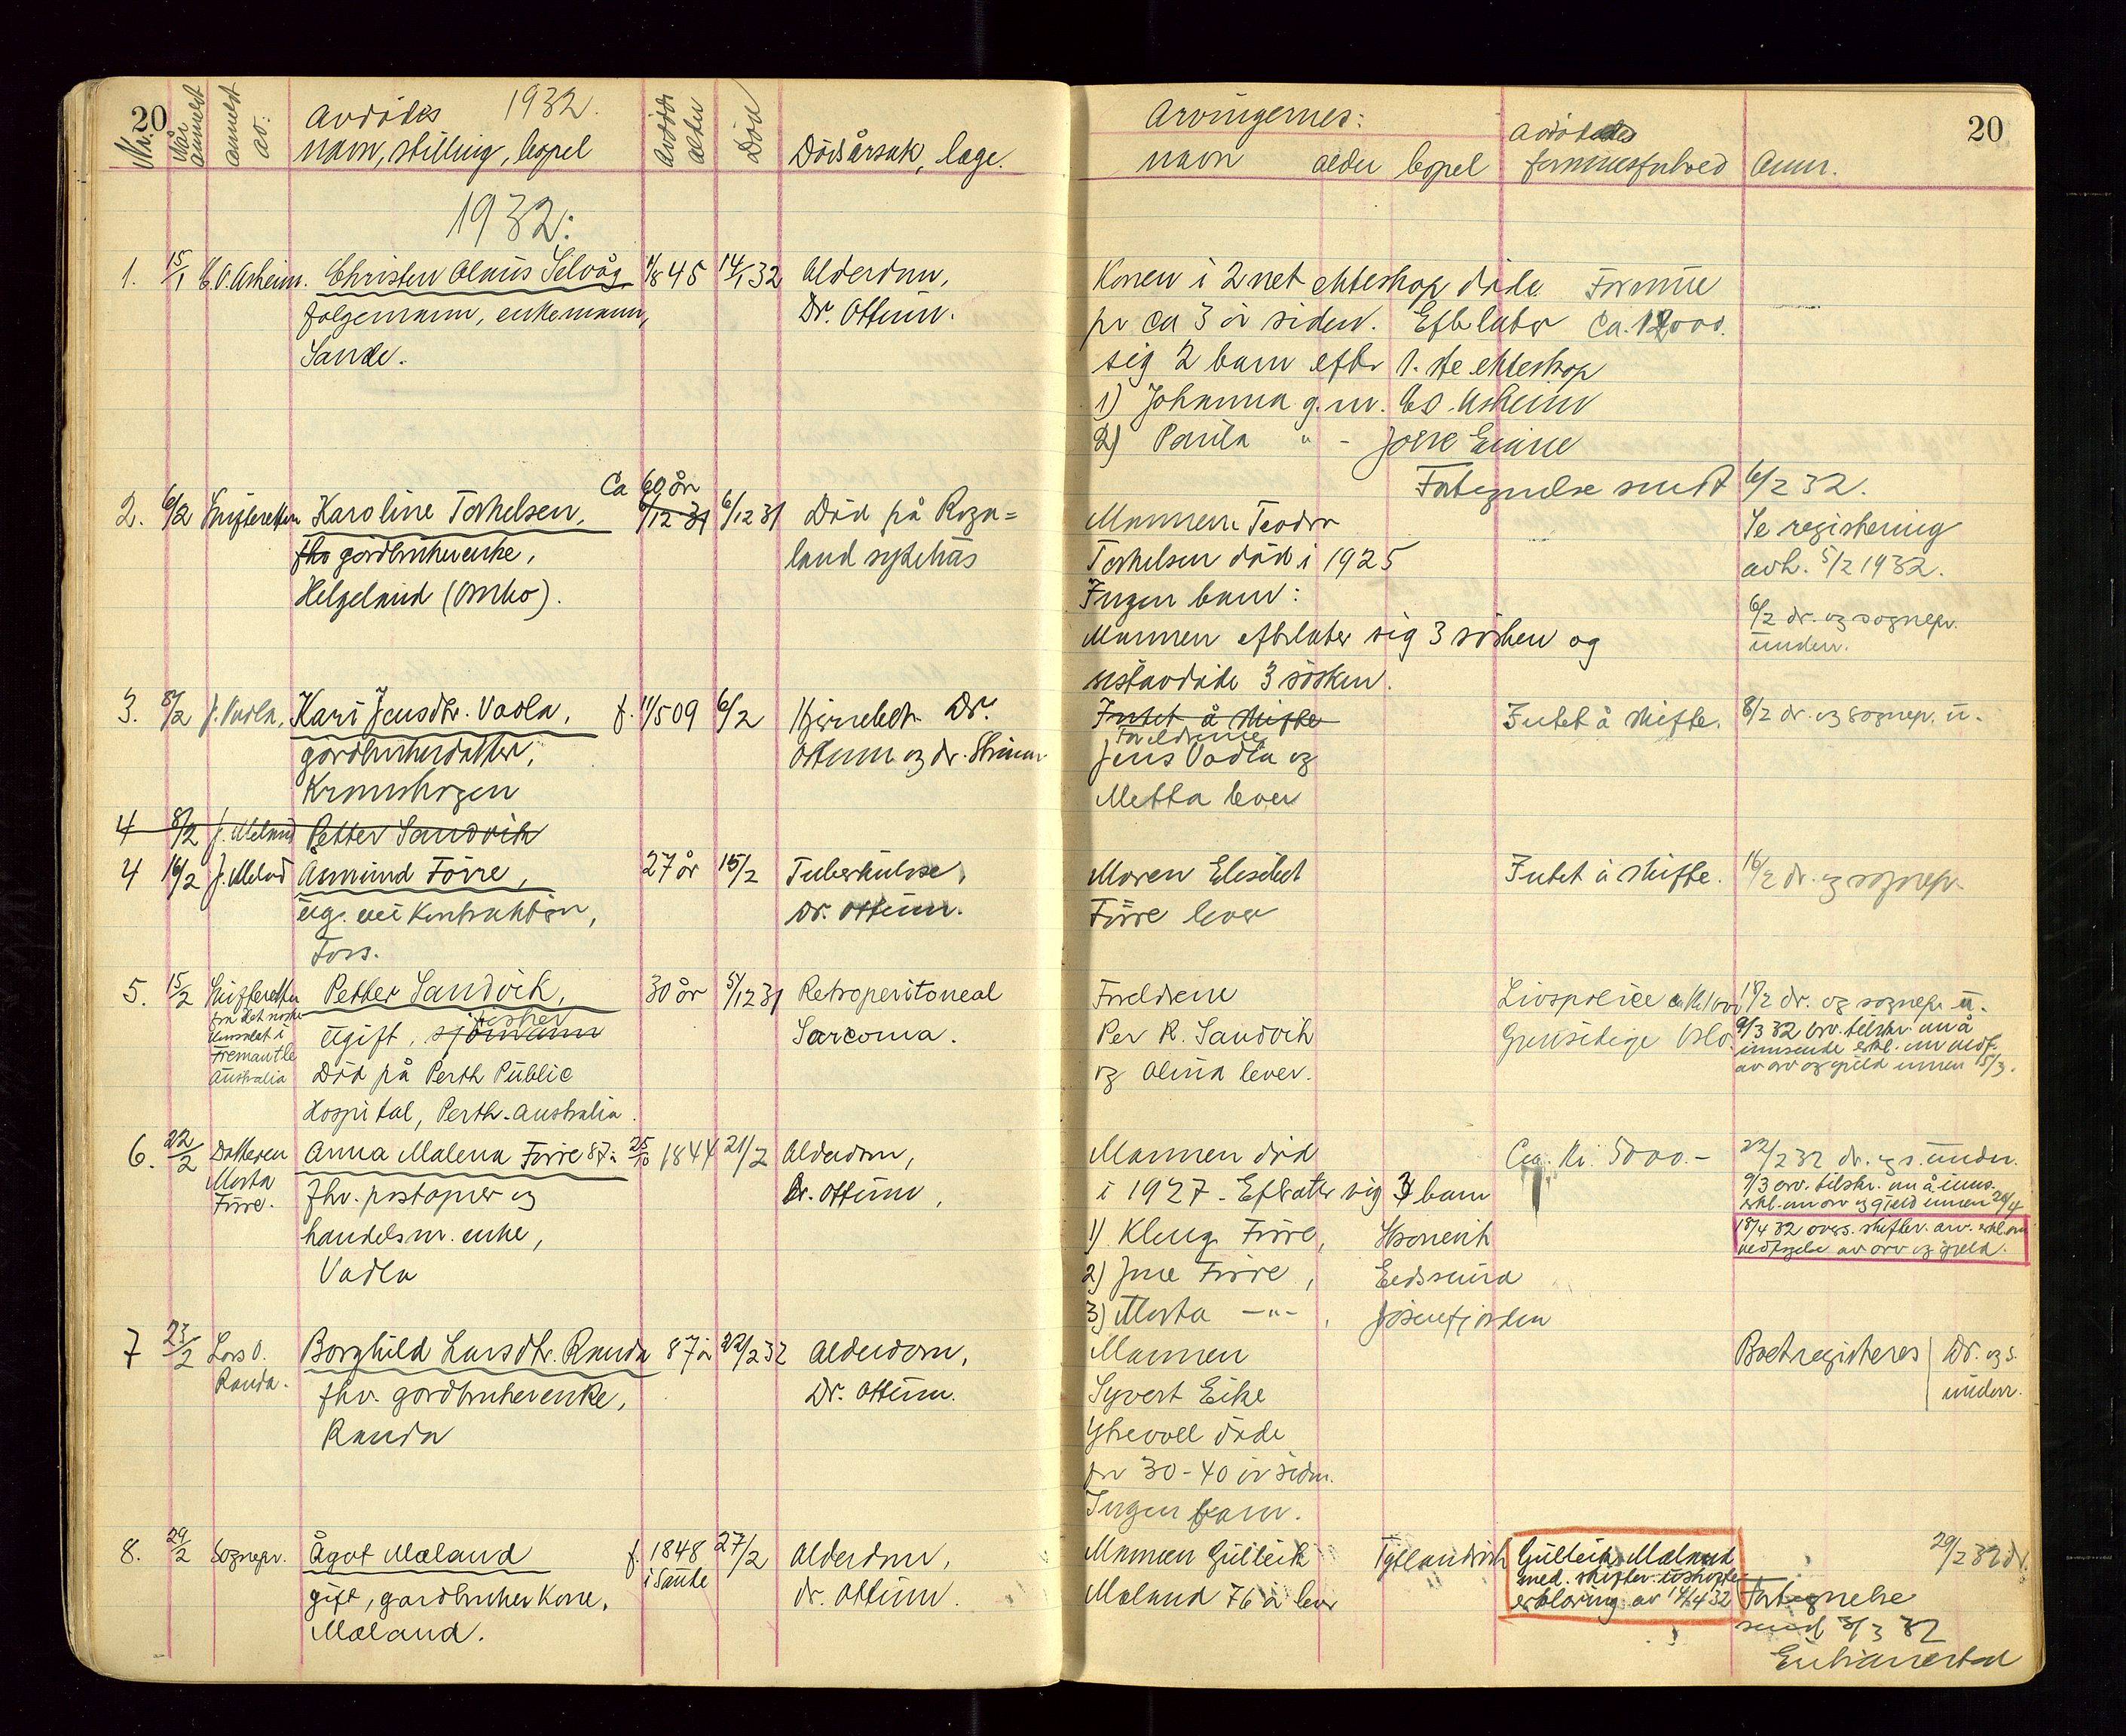 20
Nr.
Når anmeldt
anmeldt av:
Avdødes 1932.
navn, stilling, bopel
Avdødes alder
Død
Dødsårsak, læge.
1932:
1. 15/1 E. O. Asheim. Christen Olaus Selvåg 45 14/1 32 Alderdom,
folgemann, enkemann, Dr. Ottum.
Sande.
Ca 60 år
2. 6/2 Skifteretten Karoline Torkelsen, 6/12 31 6/12 31 Død på Roga=
fhv gårdbrukerenke, land sykehus
Helgeland (Ombo).
3. 8/2 J. Vadla, Kari Jensdtr. Vadla, f. 11/5 09 6/2 Dr.
gårdbrukerdatter, Ottum og dr.
4 8/2 J. Meland Petter Sandvik
4 16/2 J. Melad Åmund Førre, 27 år 15/2 Tuberkulose,
ug. Dr. Ottum.
Foss.
5. 15/2 Skifteretten Petter Sandvik, 30 år 5/12 31 Retroperitoneal
fra det norske konsulat i Fremantle Australia
ugift, sjømann fisker Sarcoma.
Død på Perth Public
Hospital, Perth-Australia.
6. 22/2 Datteren Anna Malena Førre 87 år 25/10 1844 21/2 Alderdom,
Marta fhv. postopner og Dr. Ottum,
Førre. handelsm. enke,
Vadla
7 23/2 Lars O. Borghild Larsdtr. Randa 87 år 22/2 32 Alderdom,
Randa. fhv. gårdbrukerenke, Dr. Ottum.
Randa
8. 29/2 Sognepr. Ågot Mæland f. 1848 27/2 Alderdom,
i Saude
gift, gardbrukerkone, dr. Ottum.
Mæland.
20
Arvingernes:
navn alder bopel
Avdødes
formuesforhold Anm.
Konen i 2net ekteskap døde Formue
for ca 3 år siden. Efterlater Ca. 12000.
sig 2 barn efter 1. ste ekteskap
1) Johanna g. m. E. O. Asheim
2) Paula " -
Fortegnelse sendt 6/2 32.
Mannen Teodor Se registrering
Torkelsen død i 1925 avh. 5/2 1932.
Ingen barn: 6/2 dr. og sognepr.
Mannen efterlater sig 3 søsken og underr.
avdøde 3 søsken.
Intet å skifte Intet å skifte. 8/2 dr. og sognepr. u.
Foreldrene
Jens Vadla og
Metta lever
Moren Elisabet Intet å skifte. 16/2 dr. og sognepr.
Førre lever
Foreldrene Livspolice 18/2 dr. og sognepr. u.
Per R. Sandvik Gjensidige Oslo. 9/3 32 arv. tilskr. om å
og Olina lever. innsende erkl. om vedt.
av arv og gjeld innen 15/3.
Mannen død Ca. Kr. 5000.- 22/2 32 dr. og s. underr.
i 1927. Efterlatter sig 3 barn 9/3 arv. tilskr. om å inns.
erkl. om arv og gjeld innen 20/4
1) Førre, 18/4 32 overs. skifter. arv. erkl. om
vedtagelse av arv og gjeld.
2) Førre, Eidssund
3) Marta -"-, Jøsenfjorden
Mannen Boet registreres Dr. og s.
Syvert Eike underr.
døde
for 30-40 år siden.
Ingen barn.
Mannen Gulleik Gulleik Mæland 29/2 32 dr.
Mæland 76 år lever med. skifter. uskifte
erklæring av 14/4 32 Fortegnelse
send 3/3 32